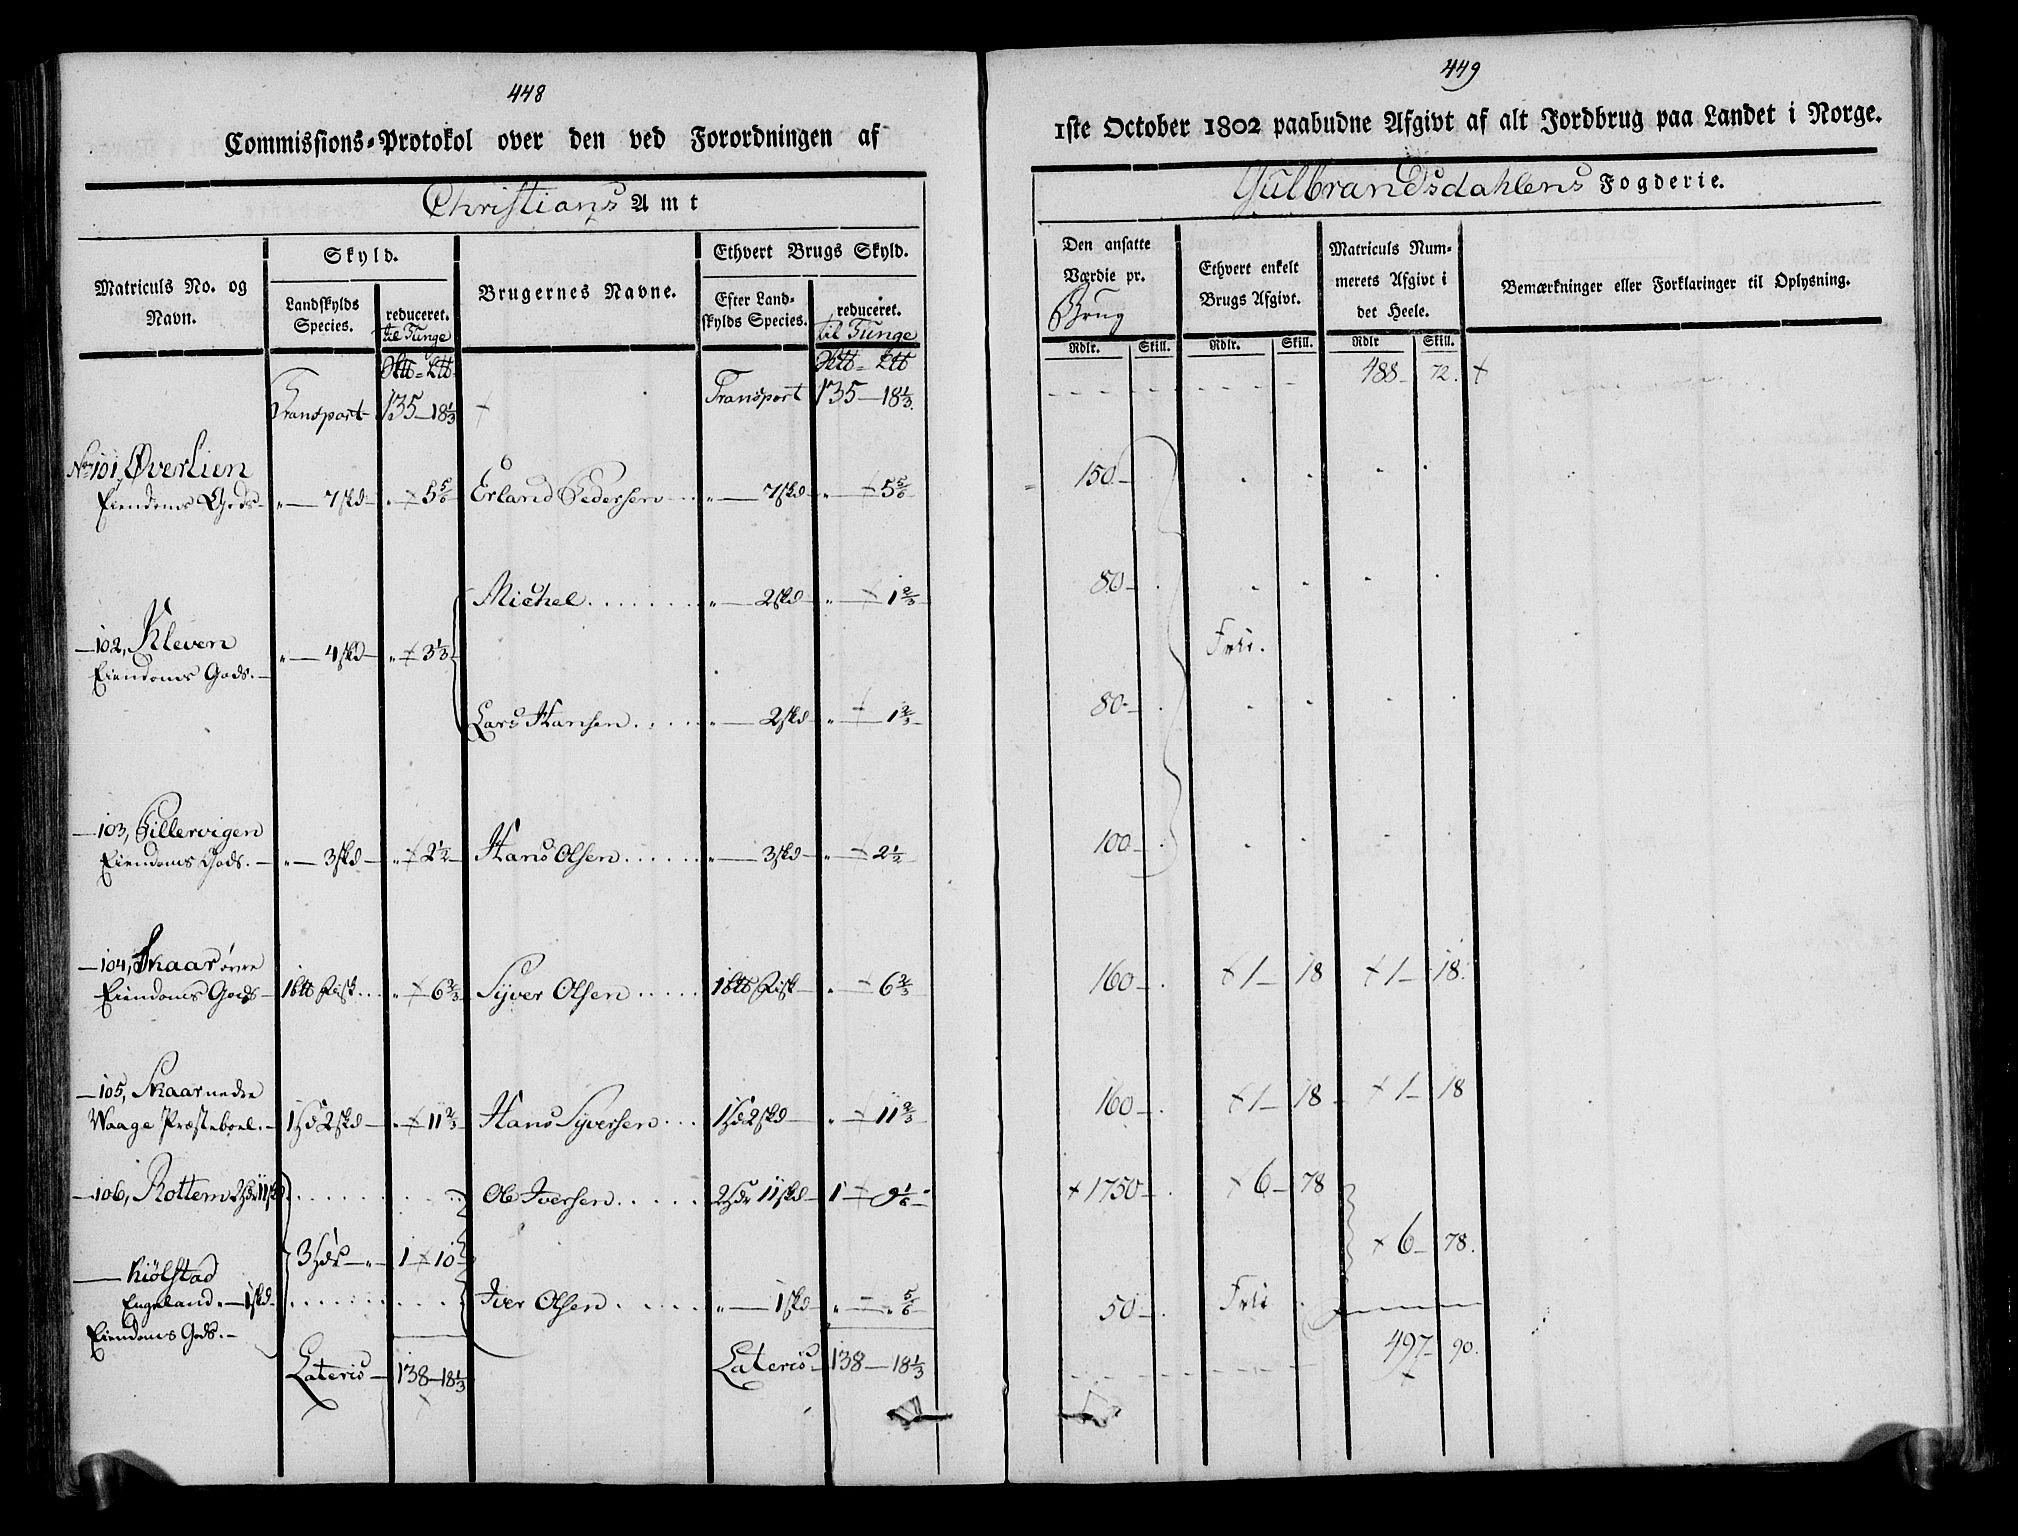 448
Commissions-Protokol over den ved Forordningen af
Christians Amt
Matriculs No. og Navn.
Skyld.
Landskylds Species.
reduceret. til Tunge
Brugernes Navne.
Ethvert Brugs Skyld.
Efter Landskylds Species.
reduceret. til Tunge
Transport 135 — 18 1/3 Transport 135 — 18 1/3.
No 101, Øverlien
Eiendoms Gods — " — 7 skd — " — 5 5/6 Erland Pedersen " — 7 skd — " — 5 5/6
Michel . . . . . . . " — 2 skd — " — 1 2/3
— 102, Kleven
Eiendoms Gods. — " — 4 skd — " — 3 1/3
Lars Hansen . . . . " — 2 skd — " — 1 2/3
— 103, Pillervigen
Eiendoms Gods. — " — 3 skd — " — 2 1/2 Hans Olsen . . . . . " — 3 skd — " — 2 1/2
— 104, Skaar øvre
Eiendoms Gods — 1 btt Fisk . . " — 6 2/3 Syver Olsen . . . . . 1 btt Fisk — " — 6 2/3
— 105, Skaar nedre
Waage Præsteboel. — 1 Hd 2 skd — " — 11 2/3 Hans Syversen . . . 1 Hd 2 skd — " — 11 2/3
— 106, Rottem 2 Hdr 11 skd Ole Iversen . . . . . 2 Hdr 11 skd — 1 — 9 1/6
3 Hdr — " — 1 — 10
— Kiølstad
Engeland " — 1 skd Iver Olsen . . . . . " — 1 skd — " — " 5/6
Eiendoms Gods. —
Lateris — 138 — 18 1/3 Lateris — 138 — 18 1/3
449
1ste October 1802 paabudne Afgivt af alt Jordbrug paa Landet i Norge.
Gulbrandsdahlens Fogderie.
Den ansatte Værdie pr. Brug
Ethvert enkelt Brugs Afgivt.
Matriculs Nummerets Afgivt i det Heele.
Bemærkninger eller Forklaringer til Oplysning.
Rdlr. Skill. Rdlr. Skill. Rdlr Skill.
488 — 72.
150 —
80 —
Frie.
80 —
100 —
160 — 1 — 18 1 — 18.
160 — 1 — 18 1 — 18
1750 — 6 — 78
6 — 78.
50 — Frie
497 — 90.